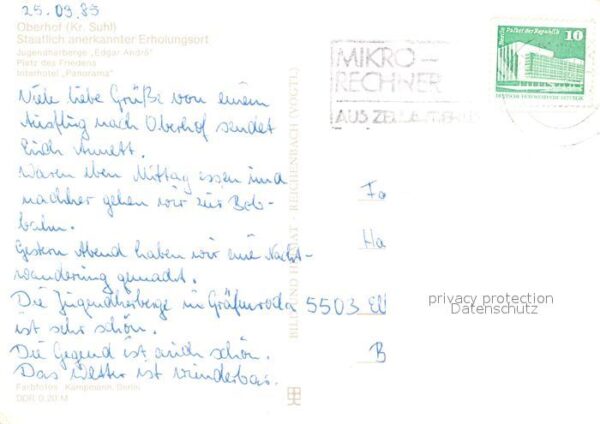 25.09.85
Oberhof (Kr. Suhl)
Staatlich anerkannter Erholungsort
Jugendherberge „Edgar André"
Platz des Friedens
Interhotel „Panorama"
Viele liebe Grüße von einem
Ausflug nach Oberhof sendet
Euch Annett.
Waren eben Mittag essen und
nachher gehen wir zur Bob-
bahn.
Gestern Abend haben wir eine Nacht-
wanderung gemacht.
Die Jugendherberge in Gräfenroda
ist sehr schön.
Die Gegend ist auch schön.
Das Wetter ist wunderbar.
Farbfotos: Kampmann, Berlin
DDR 0,20 M
BILD UND HEIMAT REICHENBACH (VOGTL)
MIKRO-
RECHNER
AUS ZELLA-MEHLIS
Berlin Palast der Republik
10
DEUTSCHE DEMOKRATISCHE REPUBLIK
Fa
Ha
5503 Ell
B
privacy protection
Datenschutz